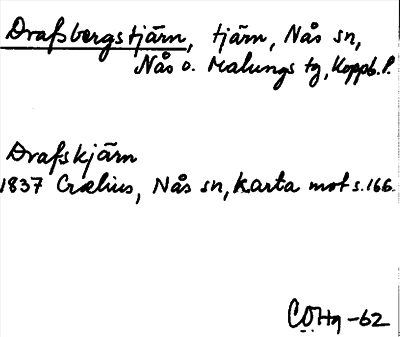 Drafsbergstjärn, tjärn, Nås sn,
Nås o. Malungs tg, Koppb. l.
Drafskjärn
1837 Crælius, Nås sn, karta mot s. 166.
COHg -62